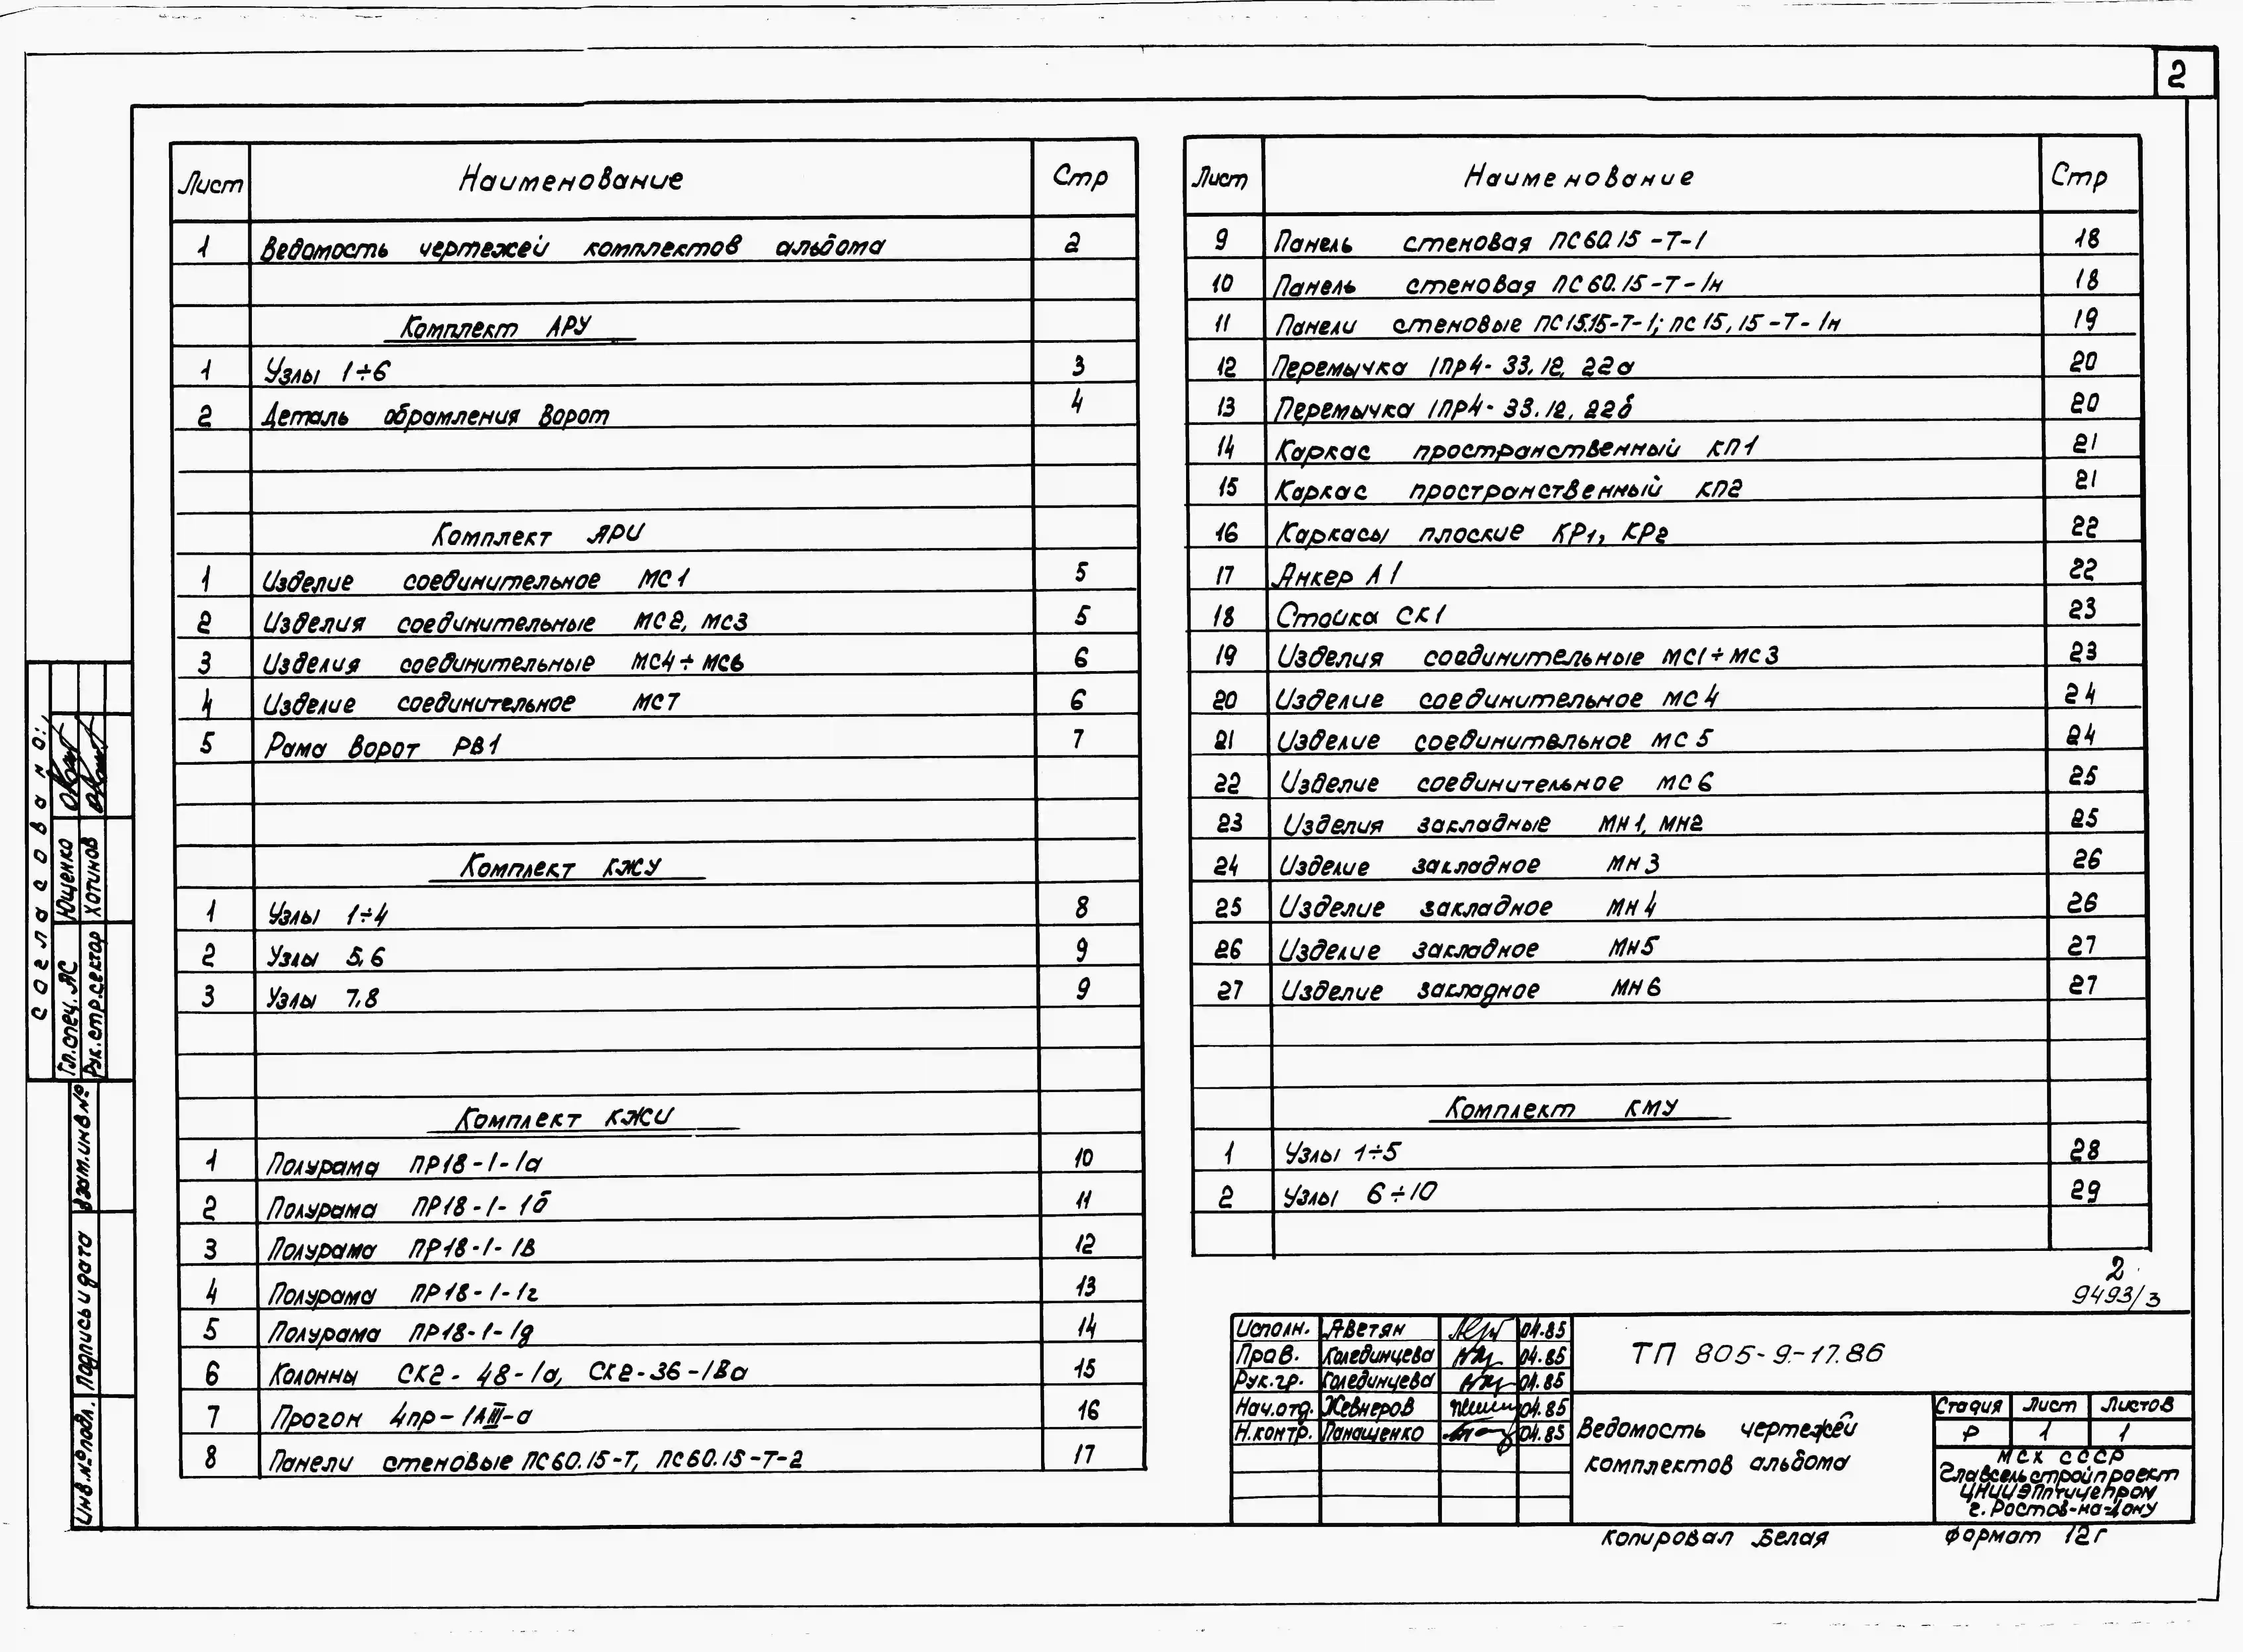 2
Лист Наименование Стр
1 Ведомость чертежей комплектов альбома 2
Комплект АРУ
1 Узлы 1÷6 3
2 Деталь обрамления ворот 4
Комплект АРИ
1 Изделие соединительное МС1 5
2 Изделия соединительные МС2, МС3 5
3 Изделия соединительные МС4÷МС6 6
4 Изделие соединительное МС7 6
5 Рама ворот РВ1 7
Комплект КЖУ
1 Узлы 1÷4 8
2 Узлы 5,6 9
3 Узлы 7,8 9
Комплект КЖИ
1 Полурама ПР18-1-1а 10
2 Полурама ПР18-1-1б 11
3 Полурама ПР18-1-1в 12
4 Полурама ПР18-1-1г 13
5 Полурама ПР18-1-1д 14
6 Колонны СК2-48-1а, СК2-36-1Ва 15
7 Прогон 4пр-1АIII-а 16
8 Панели стеновые ПС60.15-Т, ПС60.15-Т-2 17
Лист Наименование Стр
9 Панель стеновая ПС60.15-Т-1 18
10 Панель стеновая ПС60.15-Т-1н 18
11 Панели стеновые ПС15.15-Т-1; ПС15,15-Т-1н 19
12 Перемычка 1ПР4-33.12.22а 20
13 Перемычка 1ПР4-33.12.22б 20
14 Каркас пространственный КП1 21
15 Каркас пространственный КП2 21
16 Каркасы плоские КР1, КР2 22
17 Анкер А1 22
18 Стойка СК1 23
19 Изделия соединительные МС1÷МС3 23
20 Изделие соединительное МС4 24
21 Изделие соединительное МС5 24
22 Изделие соединительное МС6 25
23 Изделия закладные МН1, МН2 25
24 Изделие закладное МН3 26
25 Изделие закладное МН4 26
26 Изделие закладное МН5 27
27 Изделие закладное МН6 27
Комплект КМУ
1 Узлы 1÷5 28
2 Узлы 6÷10 29
2
9493/3
Исполн. Аветян 04.85
Пров. Колединцева 04.85
Рук.гр. Колединцева 04.85
Нач.отд. Жевнеров 04.85
Н.контр. Панащенко 04.85
ТП 805-9-17.86
Ведомость чертежей
комплектов альбома
Стадия Лист Листов
Р 1 1
МСХ СССР
Главсельстройпроект
ЦНИИЭПптицепром
г. Ростов-на-Дону
Копировал Белая Формат 12г
Согласовано:
Гл.спец.АС Ющенко
Рук.стр.сектор Хотинов
Взам.инв№
Подпись и дата
Инв.№подл.